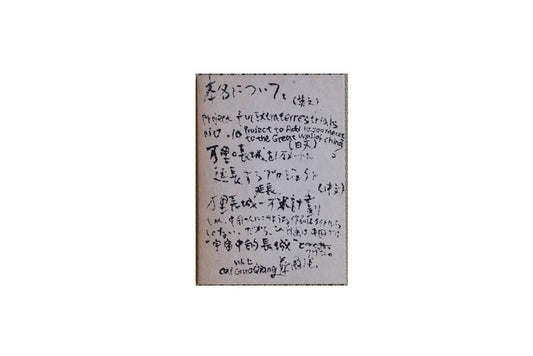 題名について。
(英文)
Project for Extraterrestrials
No.10 Project to Add 10,000 meters
to the Great Wall of China
(日文)
万里の長城を1万メートル
延長するプロジェクト
延長 (中文)
万里長城一万米計畫
しかし、中国の人に
しない。だから、
"宇宙中的長城"
以上
Cai Guo Qiang 蔡國強